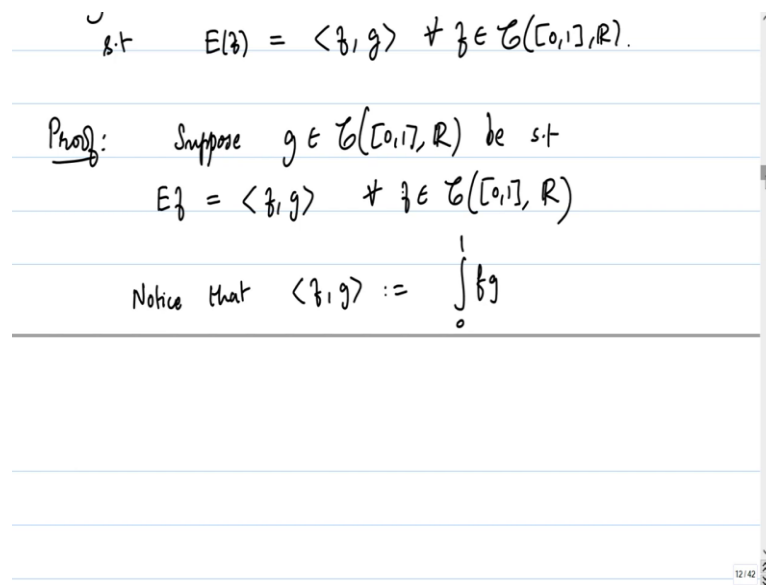 s.t E(f) = <f, g> ∀ f ∈ C([0,1], R).
Proof: Suppose g ∈ C([0,1], R) be s.t
Ef = <f, g> ∀ f ∈ C([0,1], R)
Notice that <f, g> := ∫₀¹ fg
12/42